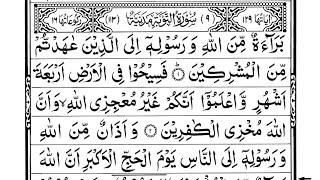 اٰیاتها ۱۲۹ (۹) سُوْرَةُ التَّوْبَةِ مَدَنِیَّةٌ (۱۱۳) رکوعاتها ۱۶
بَرَآءَةٌ مِّنَ اللّٰهِ وَرَسُوْلِهٖۤ اِلَى الَّذِیْنَ عٰهَدْتُّمْ
مِّنَ الْمُشْرِكِیْنَ ۝۱ فَسِیْحُوْا فِی الْاَرْضِ اَرْبَعَةَ
اَشْهُرٍ وَّاعْلَمُوْۤا اَنَّكُمْ غَیْرُ مُعْجِزِی اللّٰهِ ۙ وَاَنَّ
اللّٰهَ مُخْزِی الْكٰفِرِیْنَ ۝۲ وَاَذَانٌ مِّنَ اللّٰهِ
وَرَسُوْلِهٖۤ اِلَى النَّاسِ یَوْمَ الْحَجِّ الْاَكْبَرِ اَنَّ اللّٰهَ